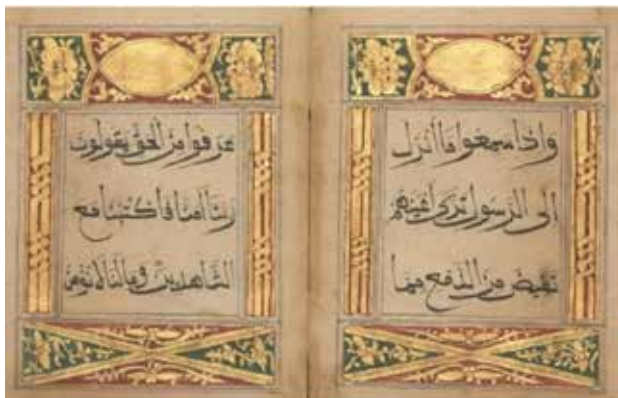 واذا سمعوا ما أنزل
الى الرسول ترى اعينهم
تفيض من الدمع مما
عرفوا من الحق يقولون
ربنا امنا فاكتبنا مع
الشاهدين وما لنا لا نؤمن